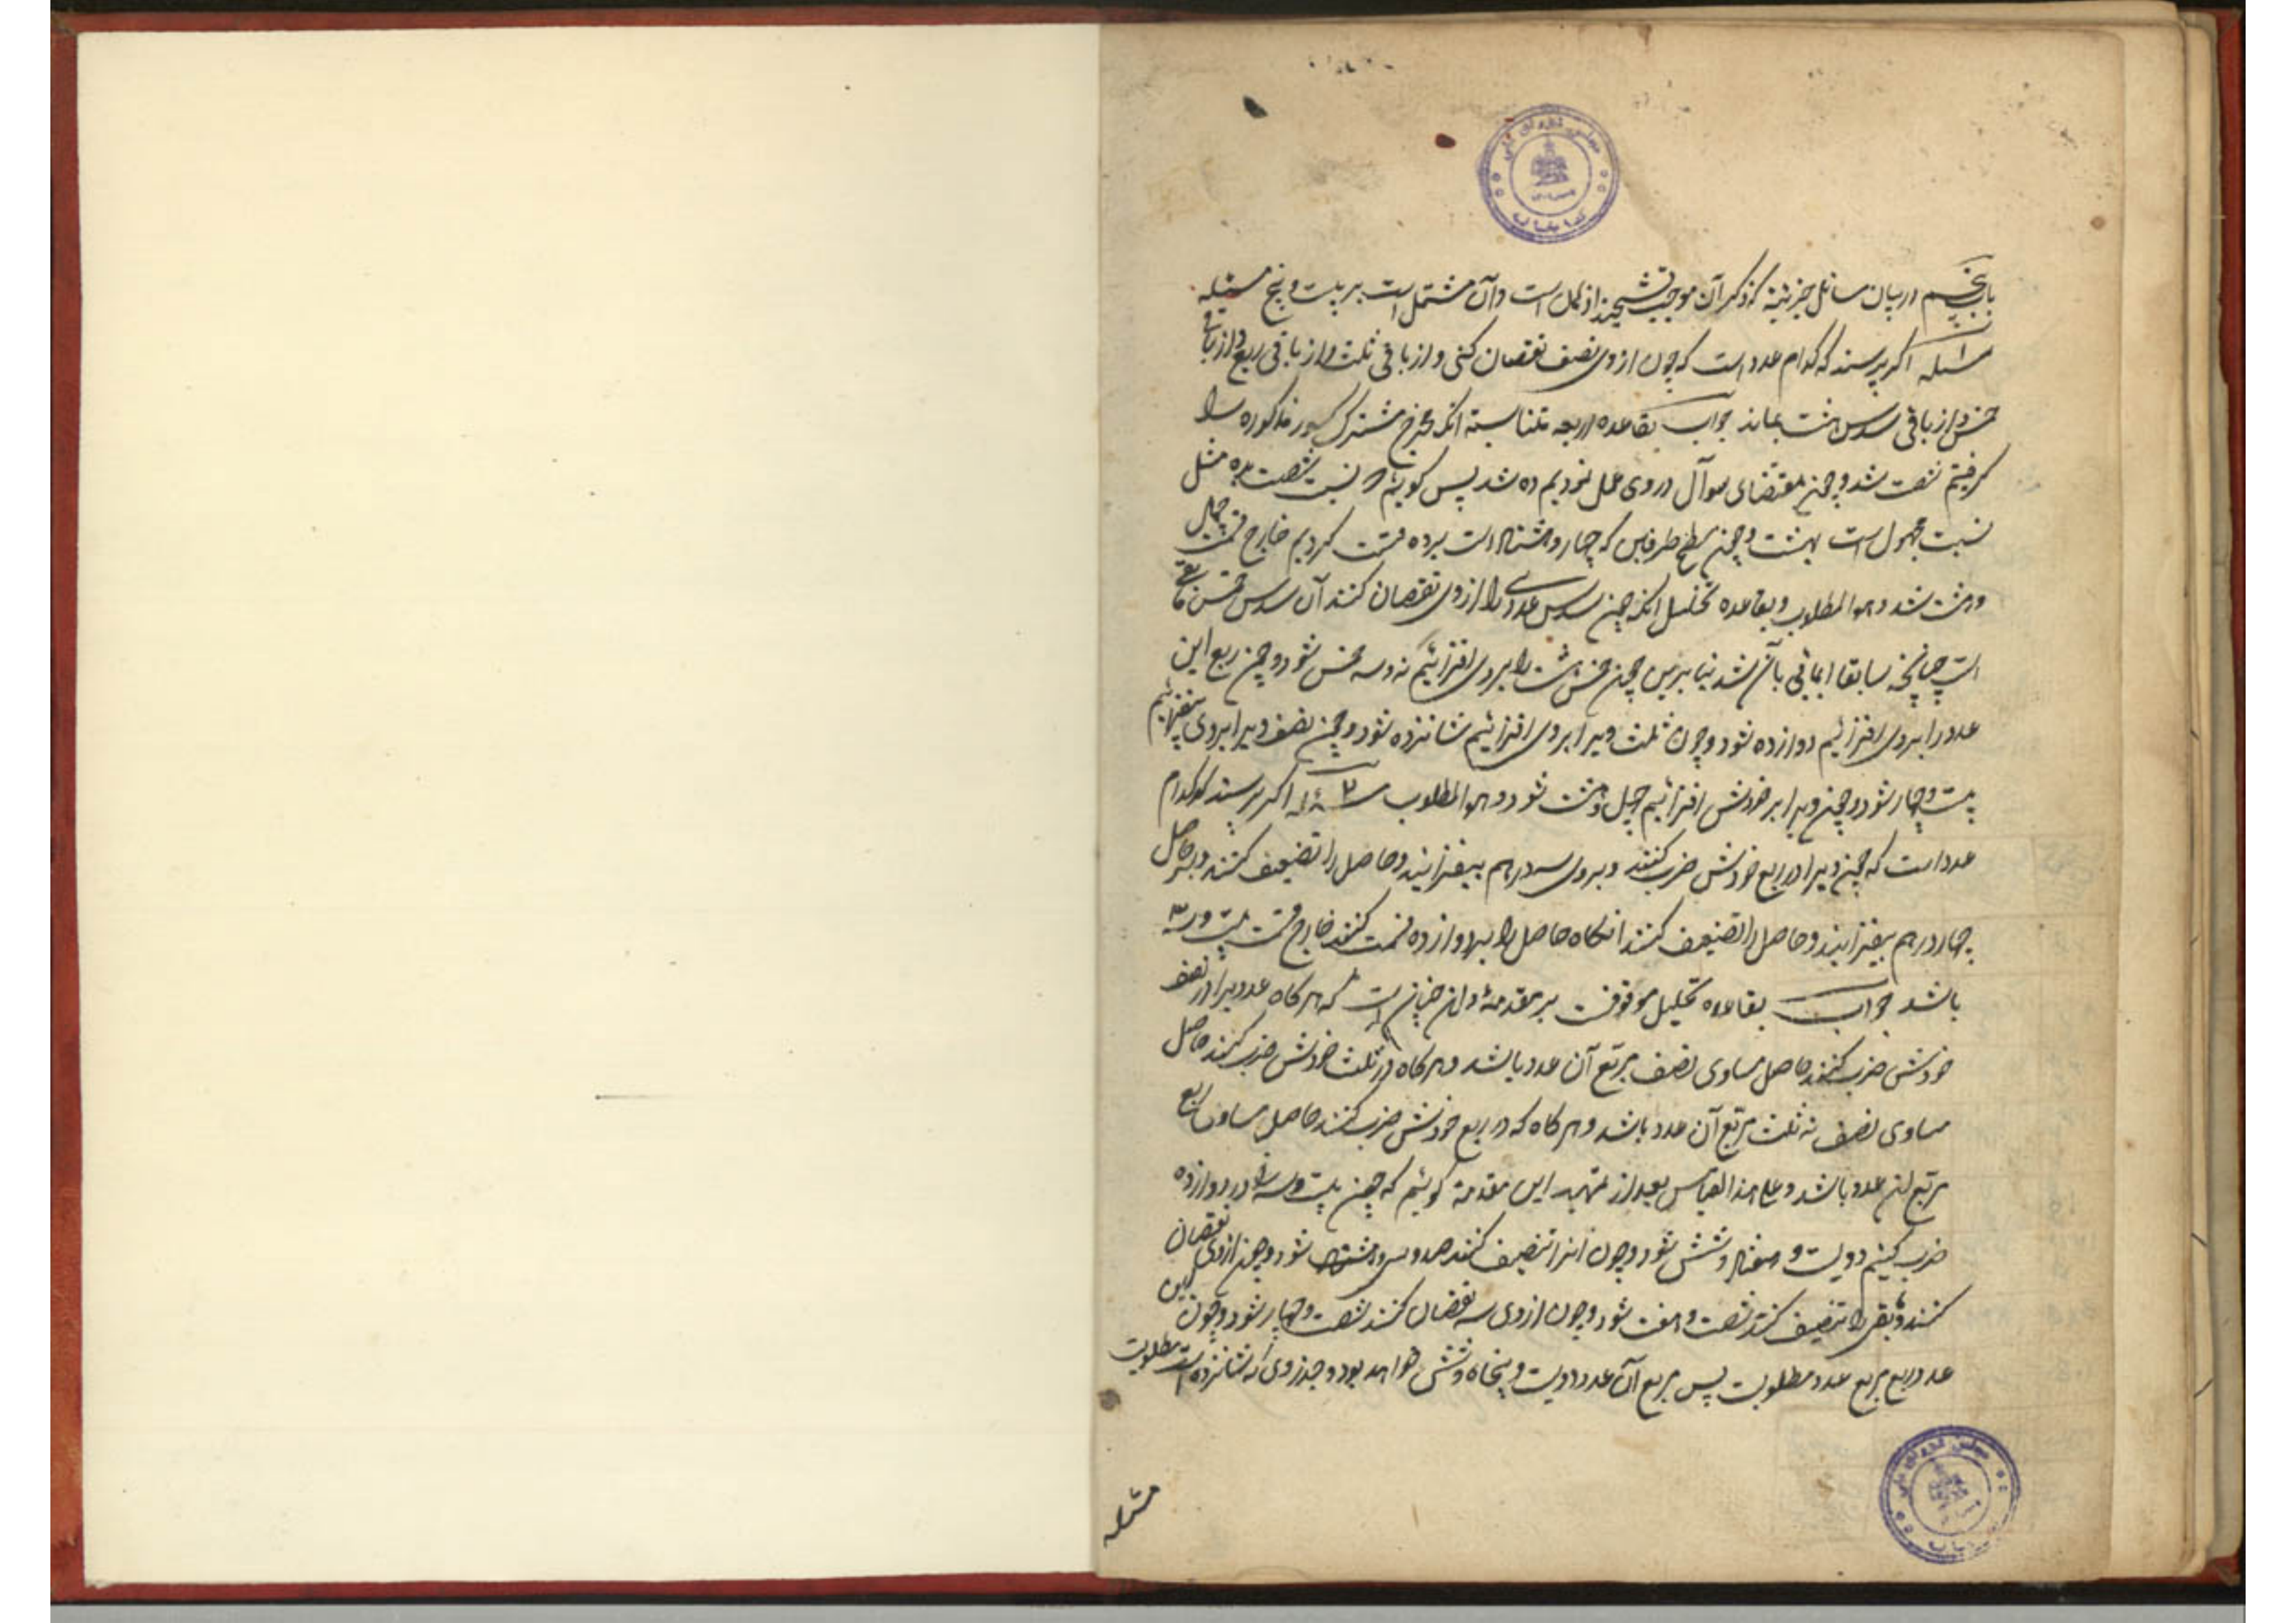 مجلس شورای ملی
کتابخانه
باب پنجم در بیان مسائل جزئیه که ذکر آن موجب تشحیذ اذهان است و آن مشتمل است بر بیست و پنج مسئله
مسئله ۱ اگر پرسند که کدام عدد است که چون از وی نصف نقصان کنی و از باقی ثلث و از باقی ربع و از باقی
خمس و از باقی سدس هشت بماند جواب بقاعده اربعه متناسبه آنکه مخرج مشترک کسور مذکوره را
گرفتیم شصت شد و چون بمقتضای سوآل در وی عمل نمودیم ده شد پس گوئیم نسبت شصت بده مثل
نسبت مجهول است بهشت و چون سطح طرفین که چهار و هشتاد است بر ده قسمت کردیم خارج قسمت چهل
و هشت شد و هو المطلوب و بقاعده تحلیل آنکه چون سدس عددی را از وی نقصان کنند آن سدس خمس باقی
است چنانچه سابقا ایمائی بآن شد بنا برین چون خمس هشت را بروی افزائیم نه و سه خمس شود و چون ربع این
عدد را بروی افزائیم دوازده شود و چون ثلث ویرا بروی افزائیم شانزده شود و چون نصف ویرا بروی بیفزائیم
بیست و چهار شود و چون ویرا بر خودش افزائیم چهل و هشت شود و هو المطلوب مسئله ۲ اگر پرسند که کدام
عدد است که چون ویرا در ربع خودش ضرب کنند و بروی سه درهم بیفزایند و حاصل را تضعیف کنند و بر حاصل
چهار درهم بیفزایند و حاصل را تضعیف کنند آنگاه حاصل را بر دوازده قسمت کنند خارج قسمت بیست و سه
باشد جواب بقاعده تحلیل موقوفست بر مقدمهٔ و آن چنان است که هر گاه عددیرا در نصف
خودش ضرب کنند حاصل مساوی نصف مربع آن عدد باشد و هر گاه در ثلث خودش ضرب کنند حاصل
مساوی نصف نه ثلث مربع آن عدد باشد و هر گاه که در ربع خودش ضرب کنند حاصل مساوی ربع
مربع آن عدد باشد و علی هذا القیاس بعد از تمهید این مقدمه گوئیم که چون بیست و سه را در دوازده
ضرب کنیم دویست و هفتاد و شش شود و چون آنرا تنصیف کنند صد و سی و هشت شود و چون از وی نقصان
کنند و بقی را تنصیف کنند شصت و هفت شود و چون از وی سه نقصان کنند شصت و چهار شود و چون این
عدد ربع مربع عدد مطلوبست پس مربع آن عدد دویست و پنجاه و شش خواهد بود و جذر وی که شانزده است مطلوبست
مسئله
مجلس شورای ملی